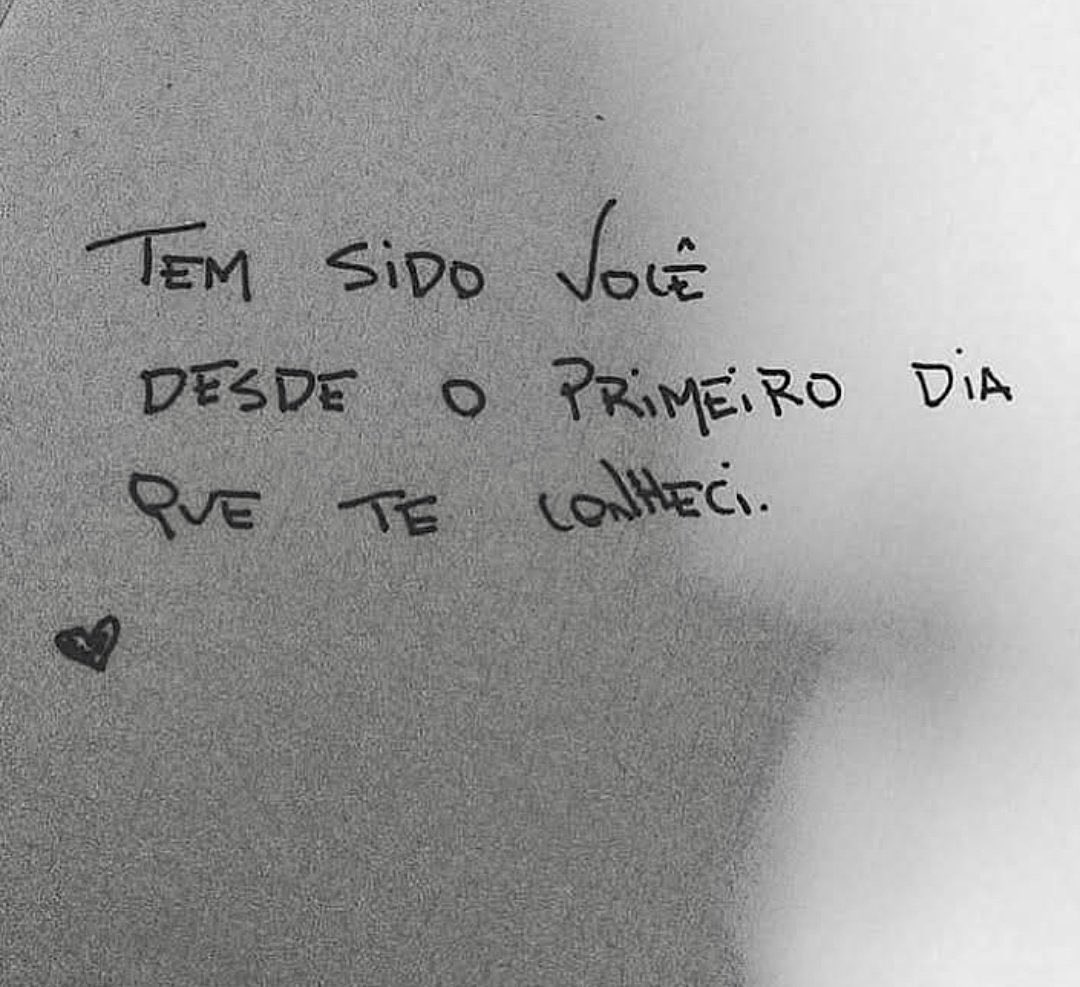 TEM SiDO VOCÊ
DESDE O PRiMEiRO DiA
QUE TE CONHECi.